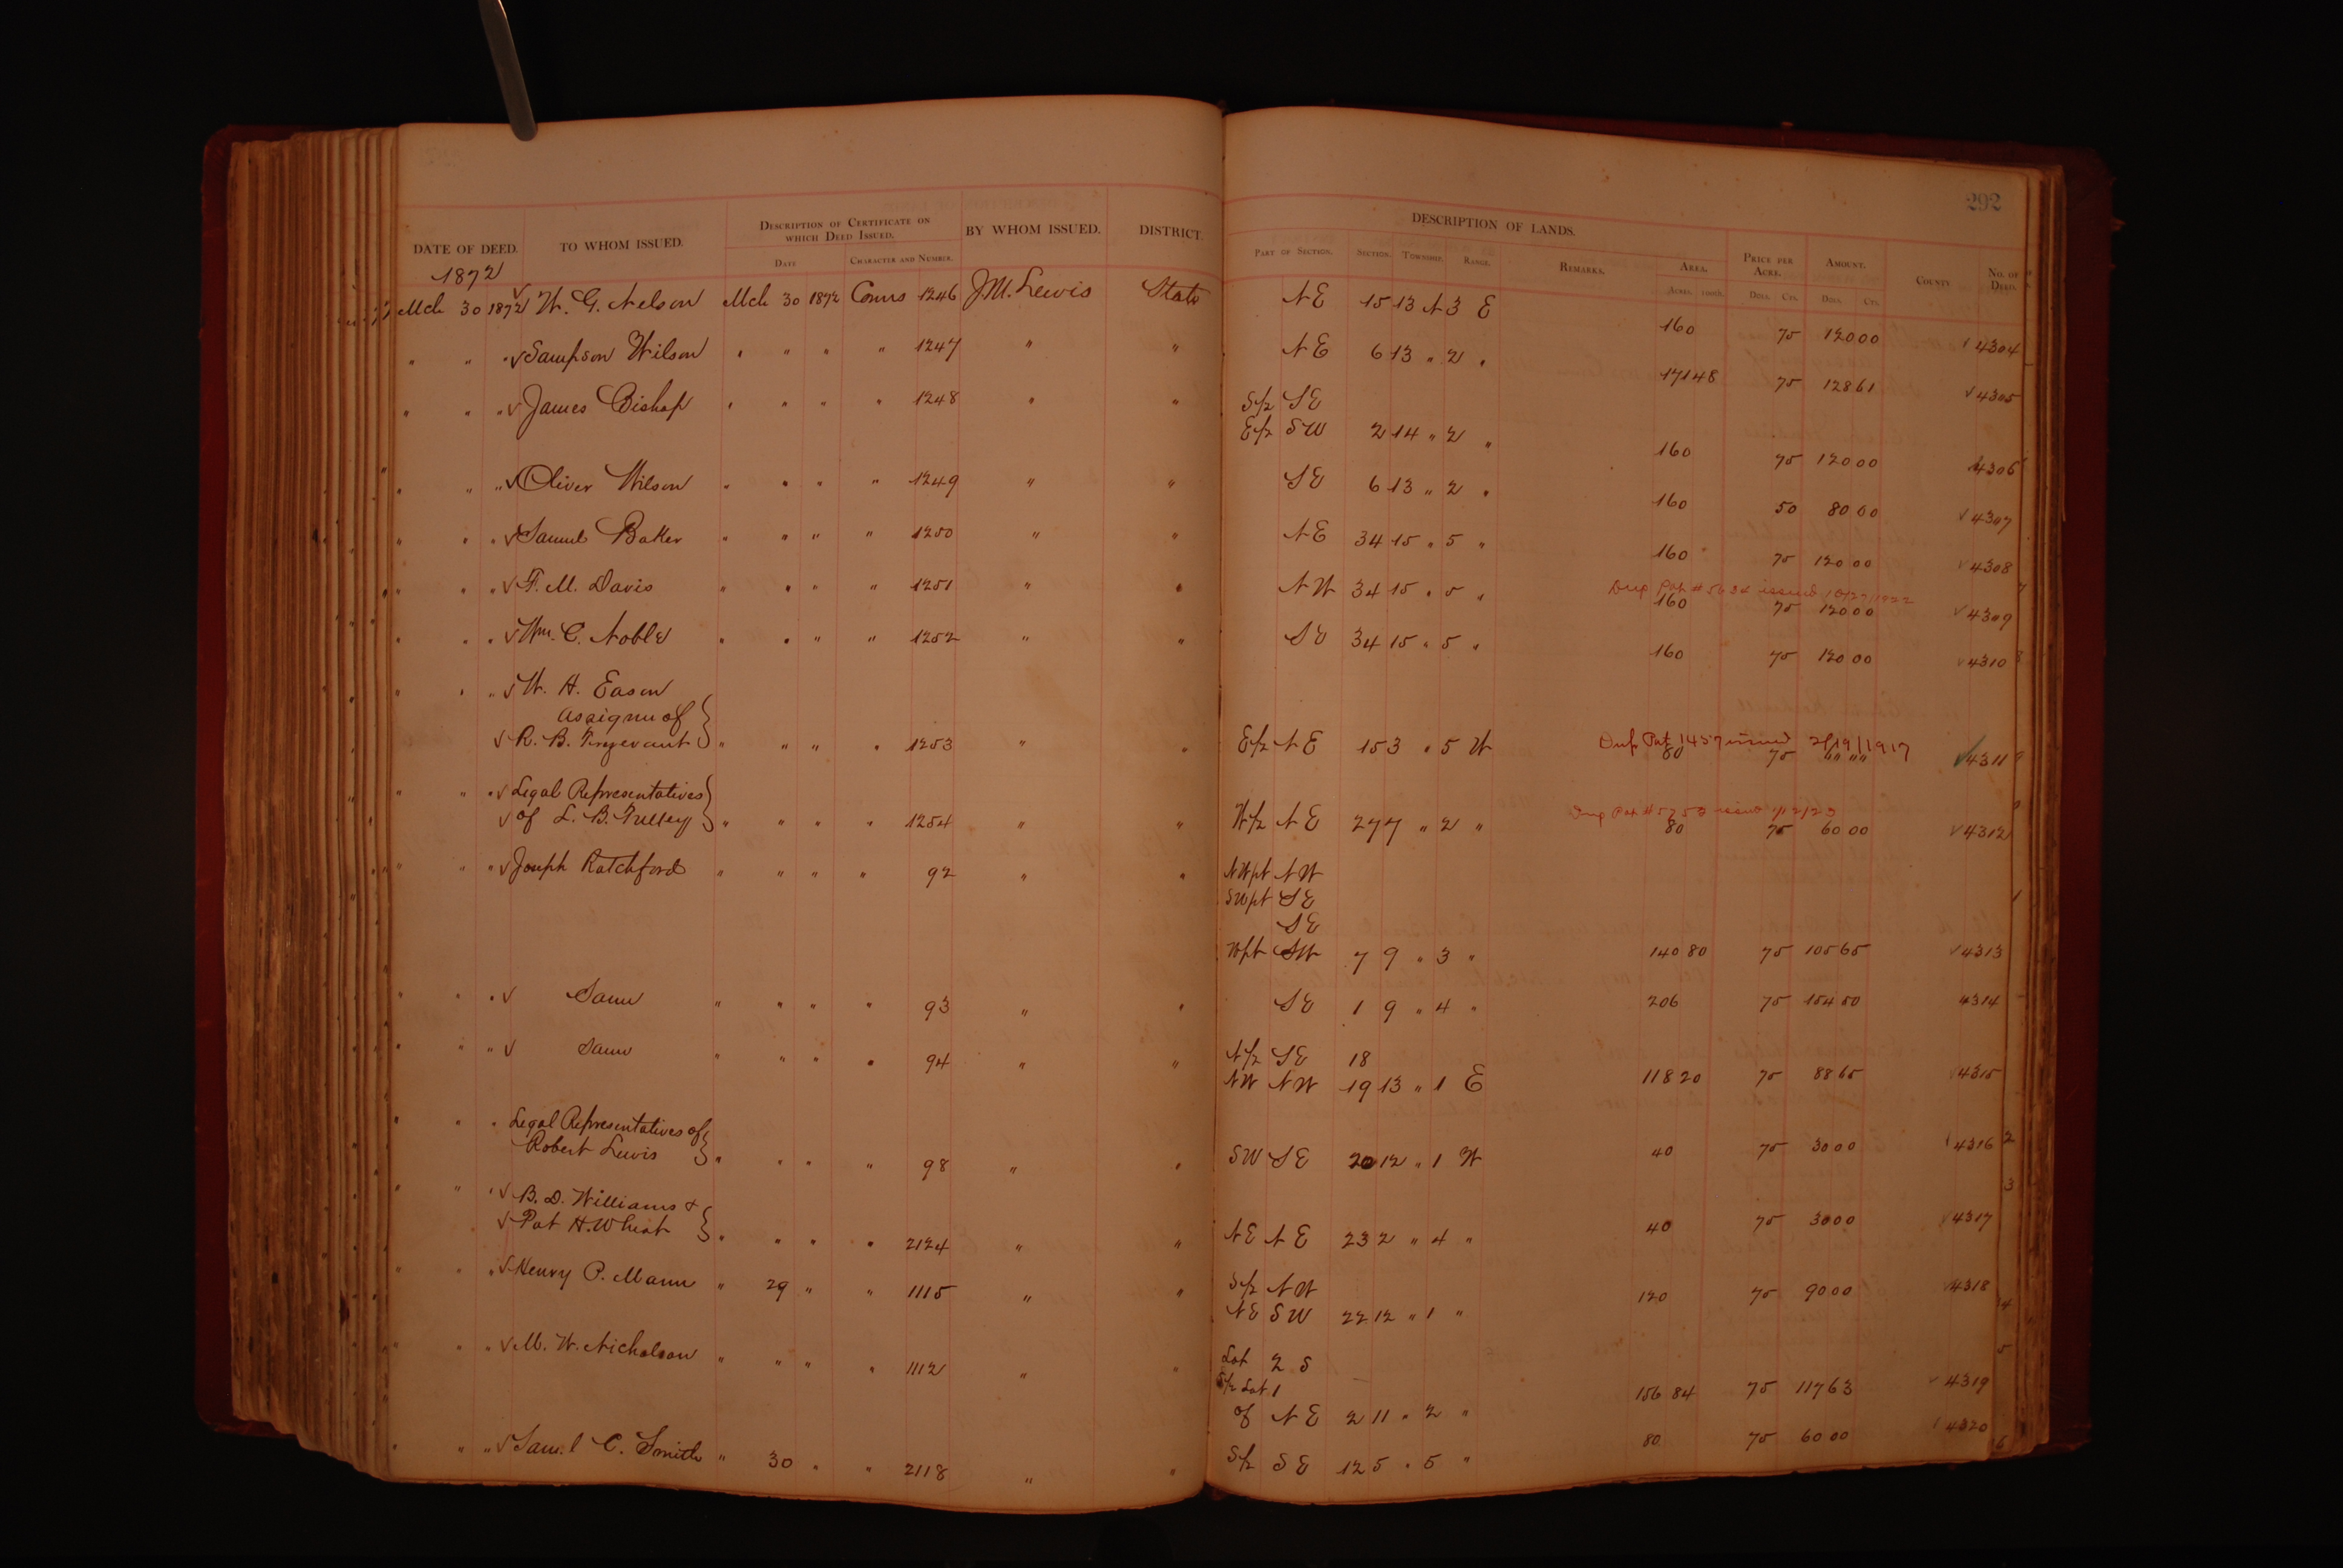 292
DESCRIPTION OF LANDS.
DATE OF DEED. TO WHOM ISSUED. DESCRIPTION OF CERTIFICATE ON WHICH DEED ISSUED. BY WHOM ISSUED. DISTRICT. PART OF SECTION. SECTION. TOWNSHIP. RANGE. REMARKS. AREA. PRICE PER ACRE. AMOUNT. COUNTY NO. OF DEED.
DATE CHARACTER AND NUMBER. ACRES 100THS DOLS. CTS. DOLS. CTS.
1872
Mch 30 1872 ✓ W. G. Nelson Mch 30 1872 Comrs 1246 J.M. Lewis State NE 15 13 N 3 E 160 75 120 00 4304
" " " ✓ Sampson Wilson " " " " 1247 " " NE 6 13 " 2 " 171 48 75 128 61 ✓ 4305
" " " ✓ James Bishop " " " " 1248 " " S/2 SE
E/2 SW 2 14 " 2 " 160 75 120 00 4306
" " " ✓ Oliver Wilson " " " " 1249 " " SE 6 13 " 2 " 160 50 80 00 ✓ 4307
" " " ✓ Samuel Baker " " " " 1250 " " NE 34 15 " 5 " 160 75 120 00 ✓ 4308
" " " ✓ F. M. Davis " " " " 1251 " " NW 34 15 " 5 " Dup Pat # issued 160 75 120 00 ✓ 4309
" " " ✓ Wm. C. Noble " " " " 1252 " " SE 34 15 " 5 " 160 75 120 00 ✓ 4310
" " " ✓ W. H. Eason
Assignee of
✓ R. B. " " " " 1253 " " E/2 NE 15 3 " 5 W Dup Pat 1457 issued 2/19/1917 80 75 60 00 ✓ 4311
" " " ✓ Legal Representatives
✓ of L. B. " " " " 1254 " " W/2 NE 27 7 " 2 " Dup Pat # 5253 issued 80 75 60 00 ✓ 4312
" " " ✓ Joseph Ratchford " " " " 92 " " NWpt NW
SWpt SE
SE
Wpt SW 7 9 " 3 " 140 80 75 105 65 ✓ 4313
" " " ✓ Same " " " " 93 " " SE 1 9 " 4 " 206 75 154 50 4314
" " " ✓ Same " " " " 94 " " N/2 SE 18
NW NW 19 13 " 1 E 118 20 75 88 65 4315
" " " Legal Representatives of
Robert Lewis " " " " 98 " " SW SE 20 12 " 1 W 40 75 30 00 4316
" " " ✓ B. D. Williams &
✓ Pat H. Wheat " " " " 2124 " " NE NE 23 2 " 4 " 40 75 30 00 4317
" " " ✓ Henry P. Mann " 29 " " 1115 " " S/2 NW
NE SW 22 12 " 1 " 120 75 90 00 4318
" " " ✓ M. W. Nicholson " " " " 1112 " " Lot 2 S
S/2 Lot 1
of NE 2 11 " 2 " 156 84 75 117 63 ✓ 4319
" " " ✓ Saml C. Smith " 30 " " 2118 " " S/2 SE 12 5 " 5 " 80 75 60 00 4320